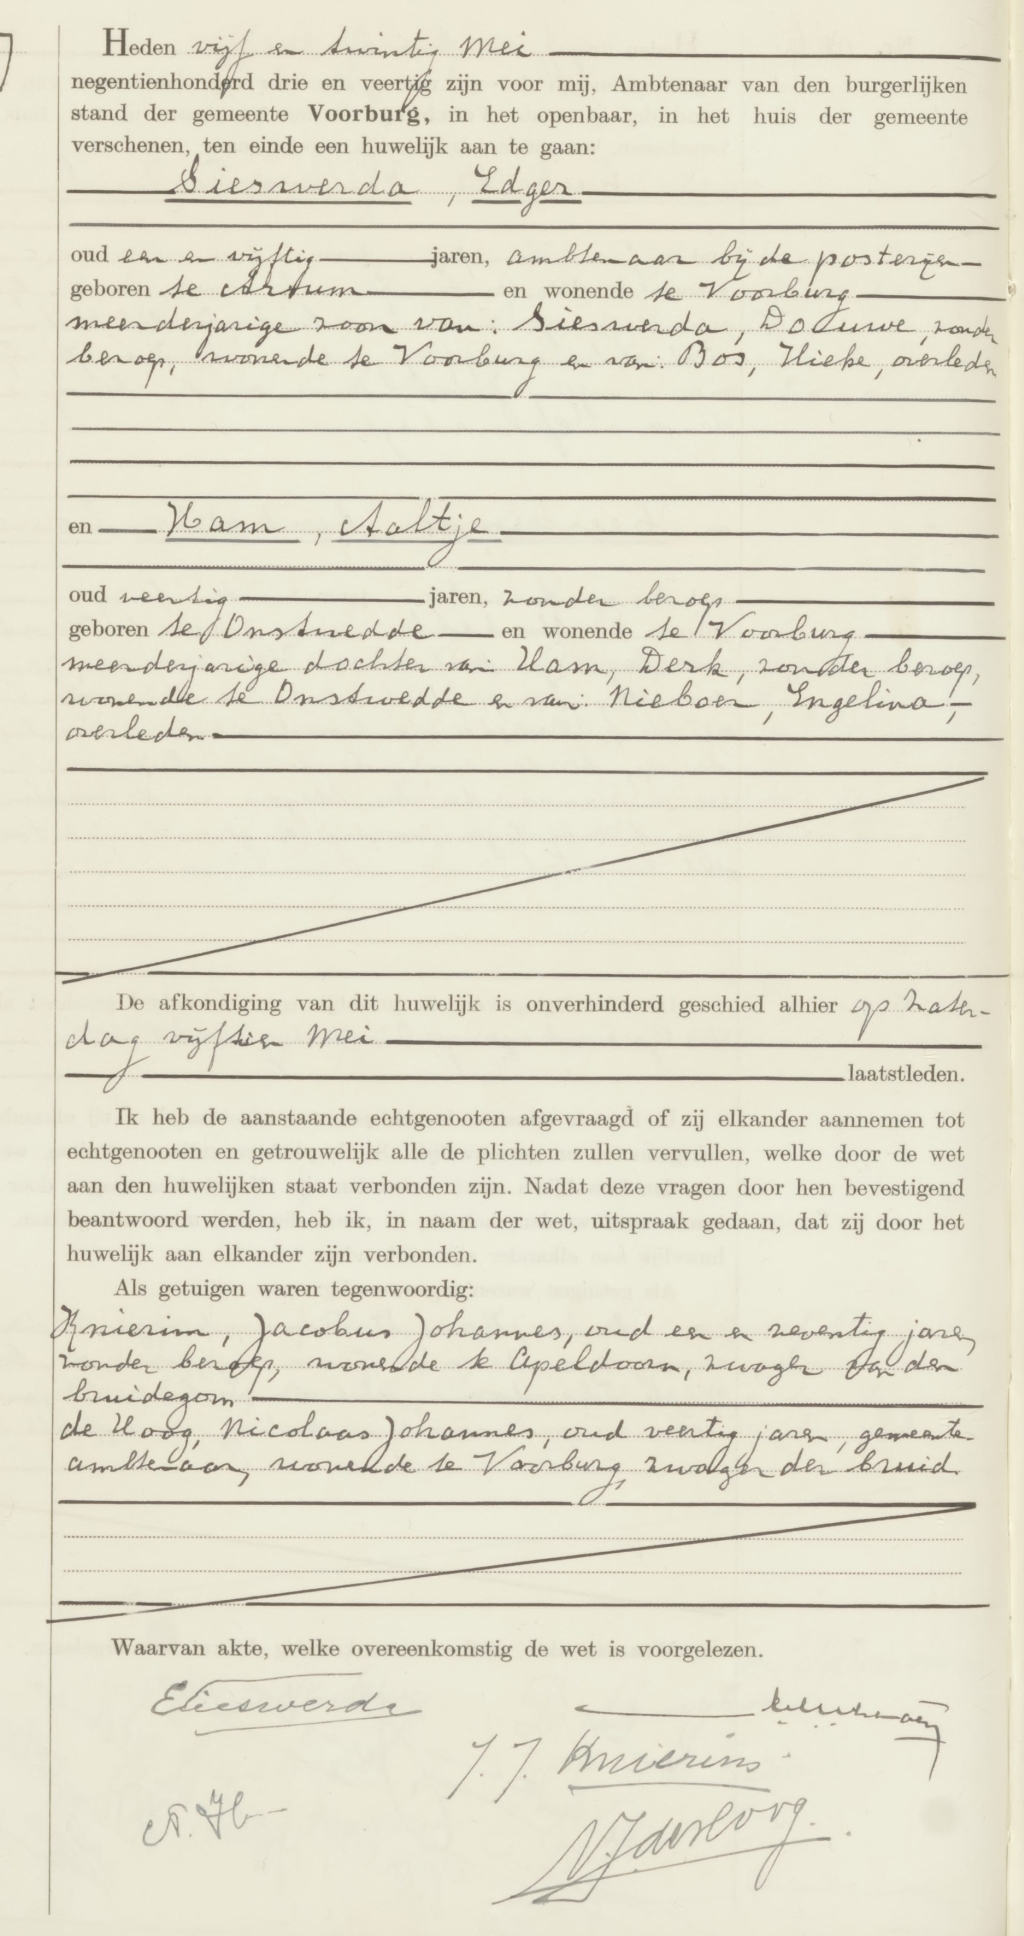 Heden vijf en twintig Mei
negentienhonderd drie en veertig zijn voor mij, Ambtenaar van den burgerlijken
stand der gemeente Voorburg, in het openbaar, in het huis der gemeente
verschenen, ten einde een huwelijk aan te gaan:
Sieswerda, Edger
oud een en vijftig jaren, ambtenaar bij de posterijen
geboren te Arum en wonende te Voorburg
meerderjarige zoon van: Sieswerda, Douwe, zonder
beroep, wonende te Voorburg en van: Bos, Hieke, overleden
en Ham, Aaltje
oud veertig jaren, zonder beroep
geboren te Onstwedde en wonende te Voorburg
meerderjarige dochter van: Ham, Derk, zonder beroep,
wonende te Onstwedde en van: Nieboer, Engelina,
overleden
De afkondiging van dit huwelijk is onverhinderd geschied alhier op Zater-
dag vijftien Mei
laatstleden.
Ik heb de aanstaande echtgenooten afgevraagd of zij elkander aannemen tot
echtgenooten en getrouwelijk alle de plichten zullen vervullen, welke door de wet
aan den huwelijken staat verbonden zijn. Nadat deze vragen door hen bevestigend
beantwoord werden, heb ik, in naam der wet, uitspraak gedaan, dat zij door het
huwelijk aan elkander zijn verbonden.
Als getuigen waren tegenwoordig:
Knierim, Jacobus Johannes, oud een en zeventig jaren,
zonder beroep, wonende te Apeldoorn, zwager van den
bruidegom
de Hoog, Nicolaas Johannes, oud veertig jaren, gemeente-
ambtenaar, wonende te Voorburg, zwager der bruid.
Waarvan akte, welke overeenkomstig de wet is voorgelezen.
ESieswerda
J. J. Knierim
A. H
N.J. de Hoog.